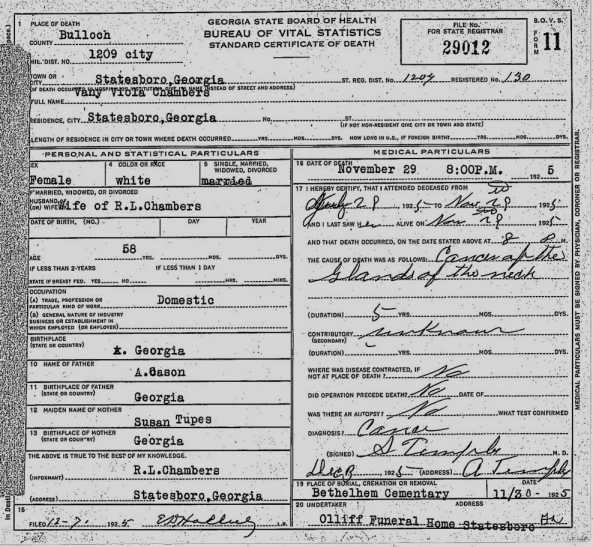 1 PLACE OF DEATH
COUNTY Bulloch
MIL. DIST. NO. 1209 city
TOWN OR CITY Statesboro,Georgia ST. REG. DIST. No. 1209 REGISTERED No. 130
Vany Viola Chambers
FULL NAME
RESIDENCE, CITY Statesboro,Georgia No. ST.
(IF NOT NON-RESIDENT GIVE CITY OR TOWN AND STATE)
LENGTH OF RESIDENCE IN CITY OR TOWN WHERE DEATH OCCURRED YRS. MOS. DYS. HOW LONG IN U.S., IF FOREIGN BIRTH? YRS. MOS. DYS.
GEORGIA STATE BOARD OF HEALTH
BUREAU OF VITAL STATISTICS
STANDARD CERTIFICATE OF DEATH
FILE No.
FOR STATE REGISTRAR
29012
S.O.V.S.
FORM 11
PERSONAL AND STATISTICAL PARTICULARS
SEX 4 COLOR OR RACE 5 SINGLE, MARRIED, WIDOWED, DIVORCED
Female white married
IF MARRIED, WIDOWED, OR DIVORCED
HUSBAND OF
(OR) WIFE OF Wife of R.L.Chambers
DATE OF BIRTH, (MO.) DAY YEAR
AGE 58 YRS. MOS. DYS.
IF LESS THAN 2-YEARS IF LESS THAN 1 DAY
STATE IF BREAST FED. YES NO HRS. MINS.
OCCUPATION
(A) TRADE, PROFESSION OR PARTICULAR KIND OF WORK Domestic
(B) GENERAL NATURE OF INDUSTRY
BUSINESS OR ESTABLISHMENT IN
WHICH EMPLOYED (OR EMPLOYER)
BIRTHPLACE
(STATE OR COUNTRY) Georgia
10 NAME OF FATHER A.Cason
11 BIRTHPLACE OF FATHER
(STATE OR COUNTRY) Georgia
12 MAIDEN NAME OF MOTHER Susan Tupes
13 BIRTHPLACE OF MOTHER
(STATE OR COUNTRY) Georgia
THE ABOVE IS TRUE TO THE BEST OF MY KNOWLEDGE.
(INFORMANT) R.L.Chambers
(ADDRESS) Statesboro,Georgia
15
FILED 12-7. 192 5 L.R.
MEDICAL PARTICULARS
16 DATE OF DEATH November 29 8:00P.M. 192 5
17 I HEREBY CERTIFY, THAT I ATTENDED DECEASED FROM
July 28 192 5 TO Nov 28 192 5
AND I LAST SAW her ALIVE ON Nov 28 192 5
AND THAT DEATH OCCURRED, ON THE DATE STATED ABOVE AT 8 P M.
THE CAUSE OF DEATH WAS AS FOLLOWS: Cancer of the
Glands of the neck
(DURATION) 5 YRS. MOS. DYS.
CONTRIBUTORY unknown
(SECONDARY)
(DURATION) YRS. MOS. DYS.
WHERE WAS DISEASE CONTRACTED, IF
NOT AT PLACE OF DEATH? No
DID OPERATION PRECEDE DEATH? No DATE OF
WAS THERE AN AUTOPSY? No WHAT TEST CONFIRMED
DIAGNOSIS? Cancer
(SIGNED) M. D.
Dec 192 5 (ADDRESS)
19 PLACE OF BURIAL, CREMATION OR REMOVAL DATE
Bethelhem Cementary 11/30- 192 5
20 UNDERTAKER ADDRESS
Olliff Funeral Home Statesboro
MEDICAL PARTICULARS MUST BE SIGNED BY PHYSICIAN, CORONER OR REGISTRAR.